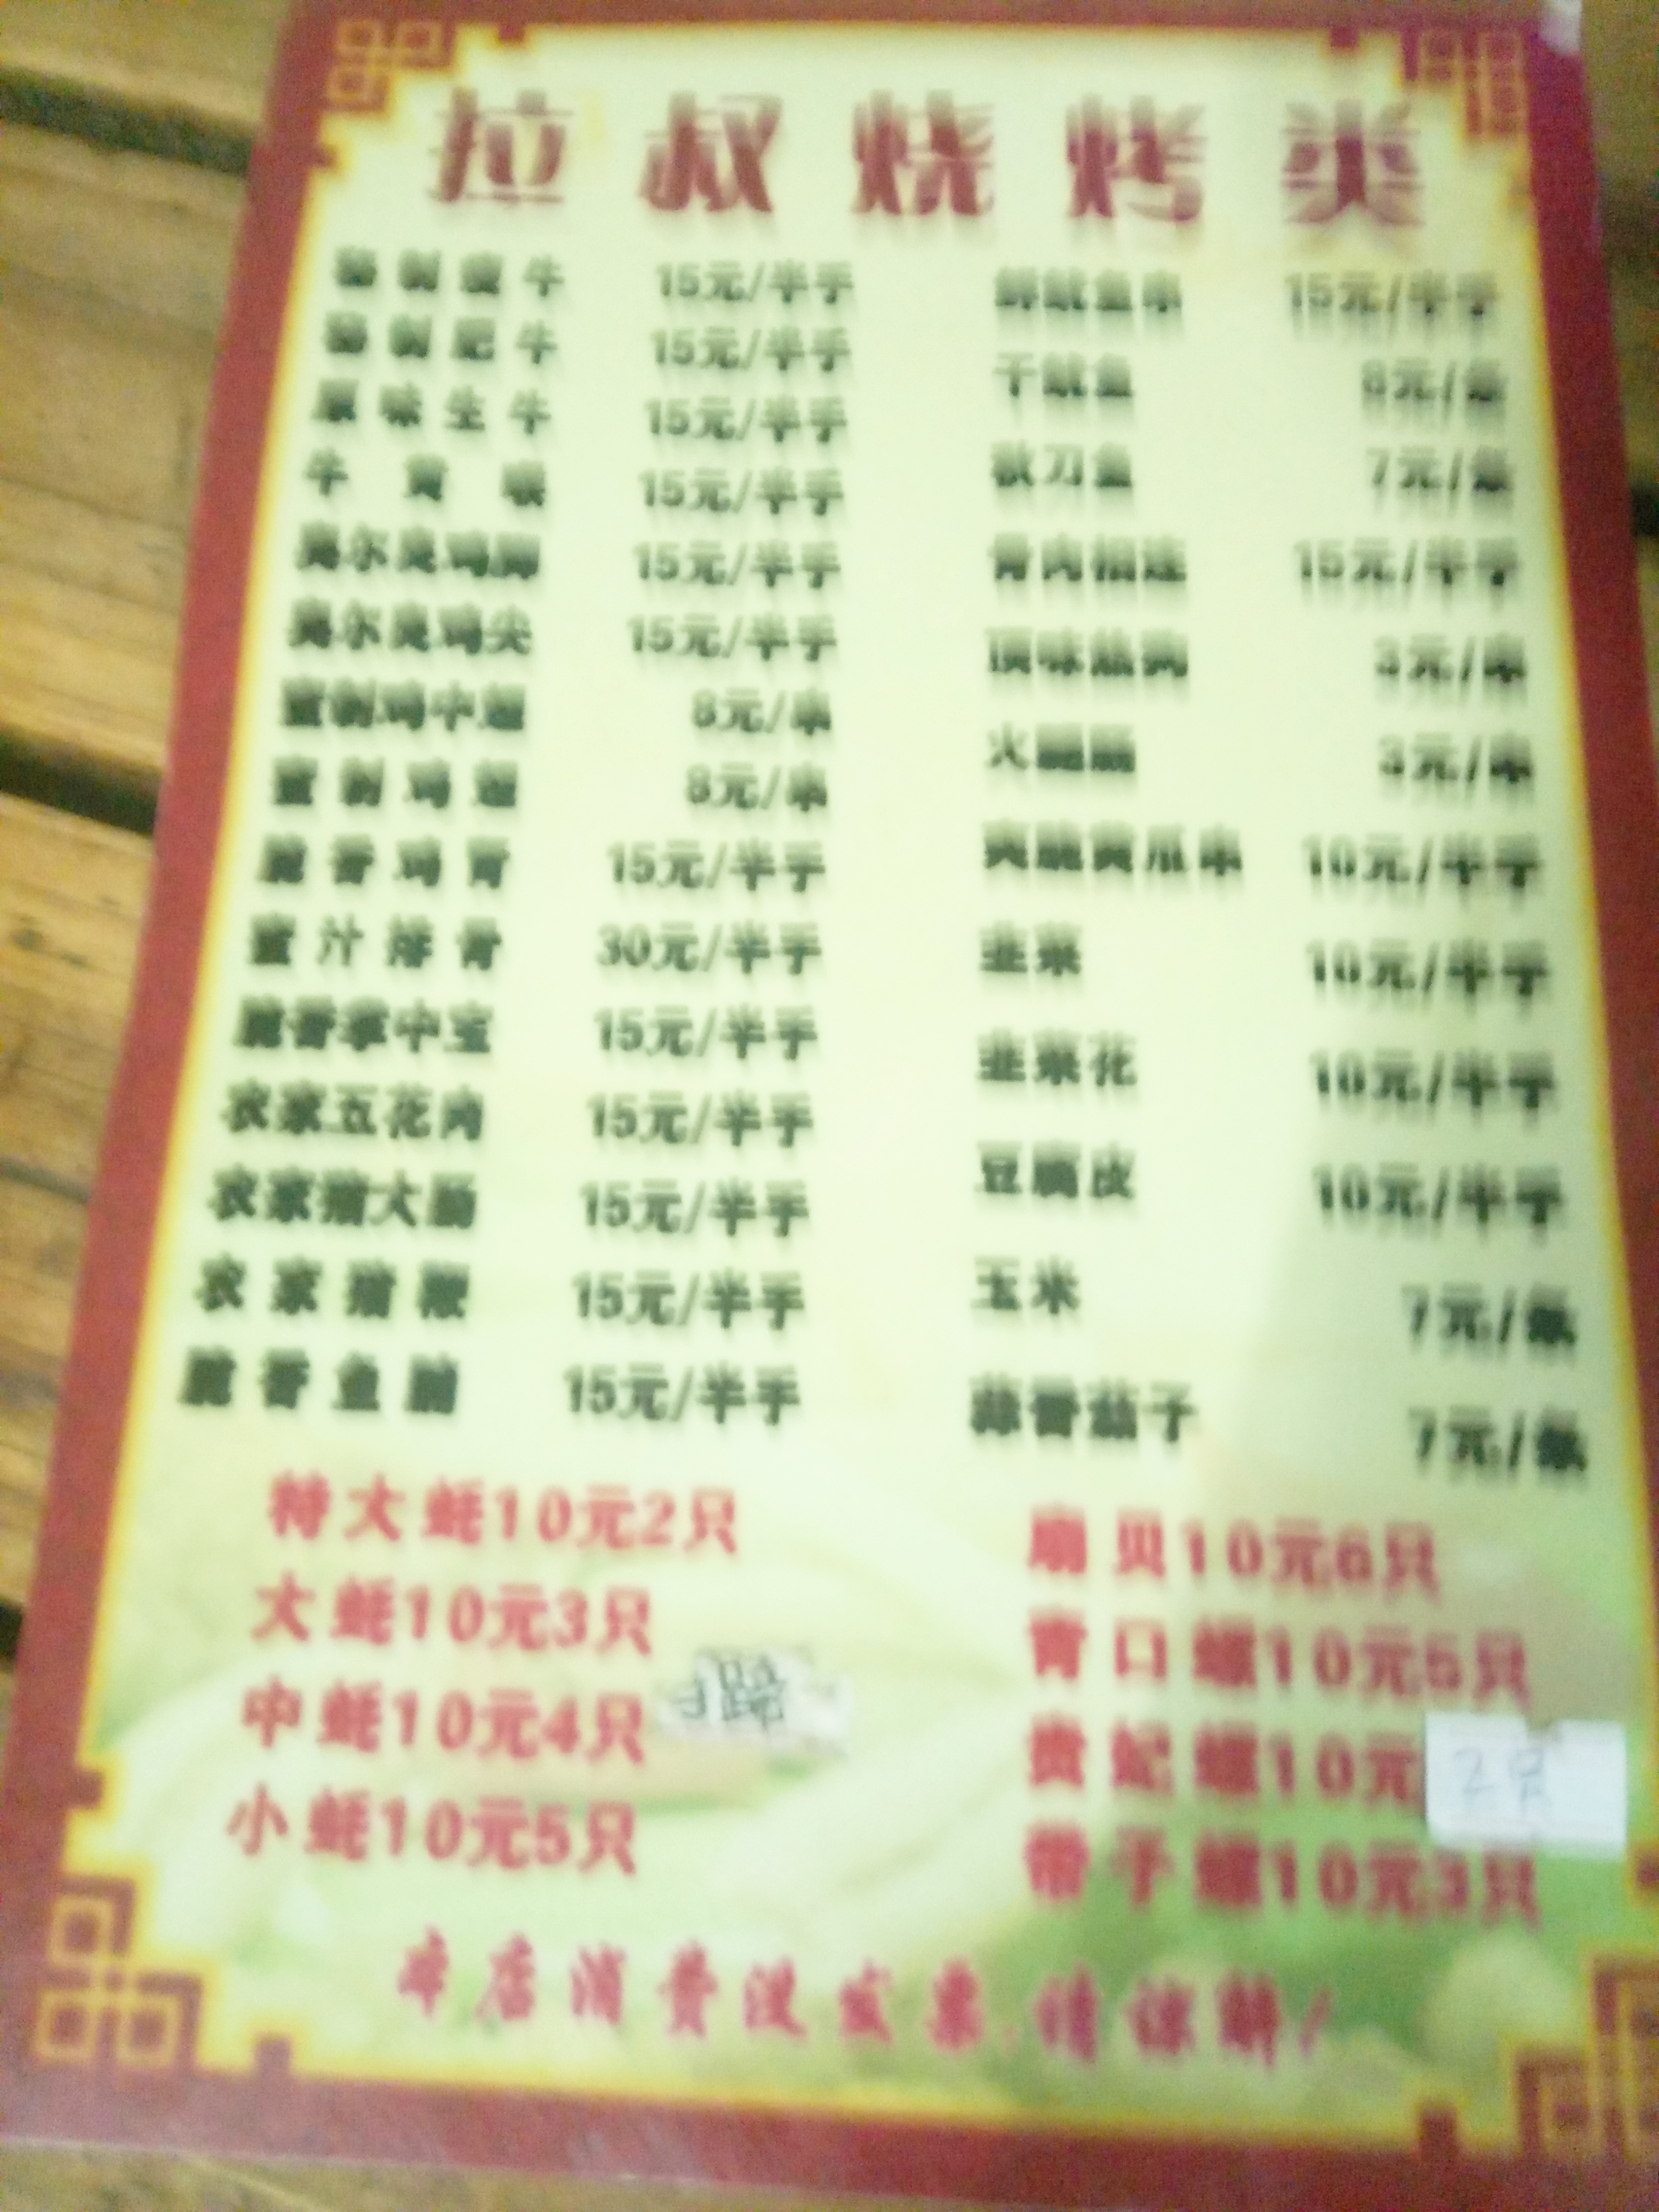 拉叔烧烤类
秘制瘦牛 15元/半手
秘制肥牛 15元/半手
原味生牛 15元/半手
牛黄喉 15元/半手
奥尔良鸡脚 15元/半手
奥尔良鸡尖 15元/半手
蜜制鸡中翅 8元/串
蜜制鸡翅 8元/串
脆香鸡胃 15元/半手
蜜汁排骨 30元/半手
脆香掌中宝 15元/半手
农家五花肉 15元/半手
农家猪大肠 15元/半手
农家猪鞭 15元/半手
脆香鱼腩 15元/半手
鲜鱿鱼串 15元/半手
干鱿鱼 8元/条
秋刀鱼 7元/条
骨肉相连 15元/半手
顶味热狗 3元/串
火腿肠 3元/串
爽脆黄瓜串 10元/半手
韭菜 10元/半手
韭菜花 10元/半手
豆腐皮 10元/半手
玉米 7元/条
蒜香茄子 7元/条
特大蚝10元2只
大蚝10元3只
中蚝10元4只
小蚝10元5只
扇贝10元6只
青口螺10元5只
贵妃螺10元 2只
带子螺10元3只
本店消费没发票,请谅解!